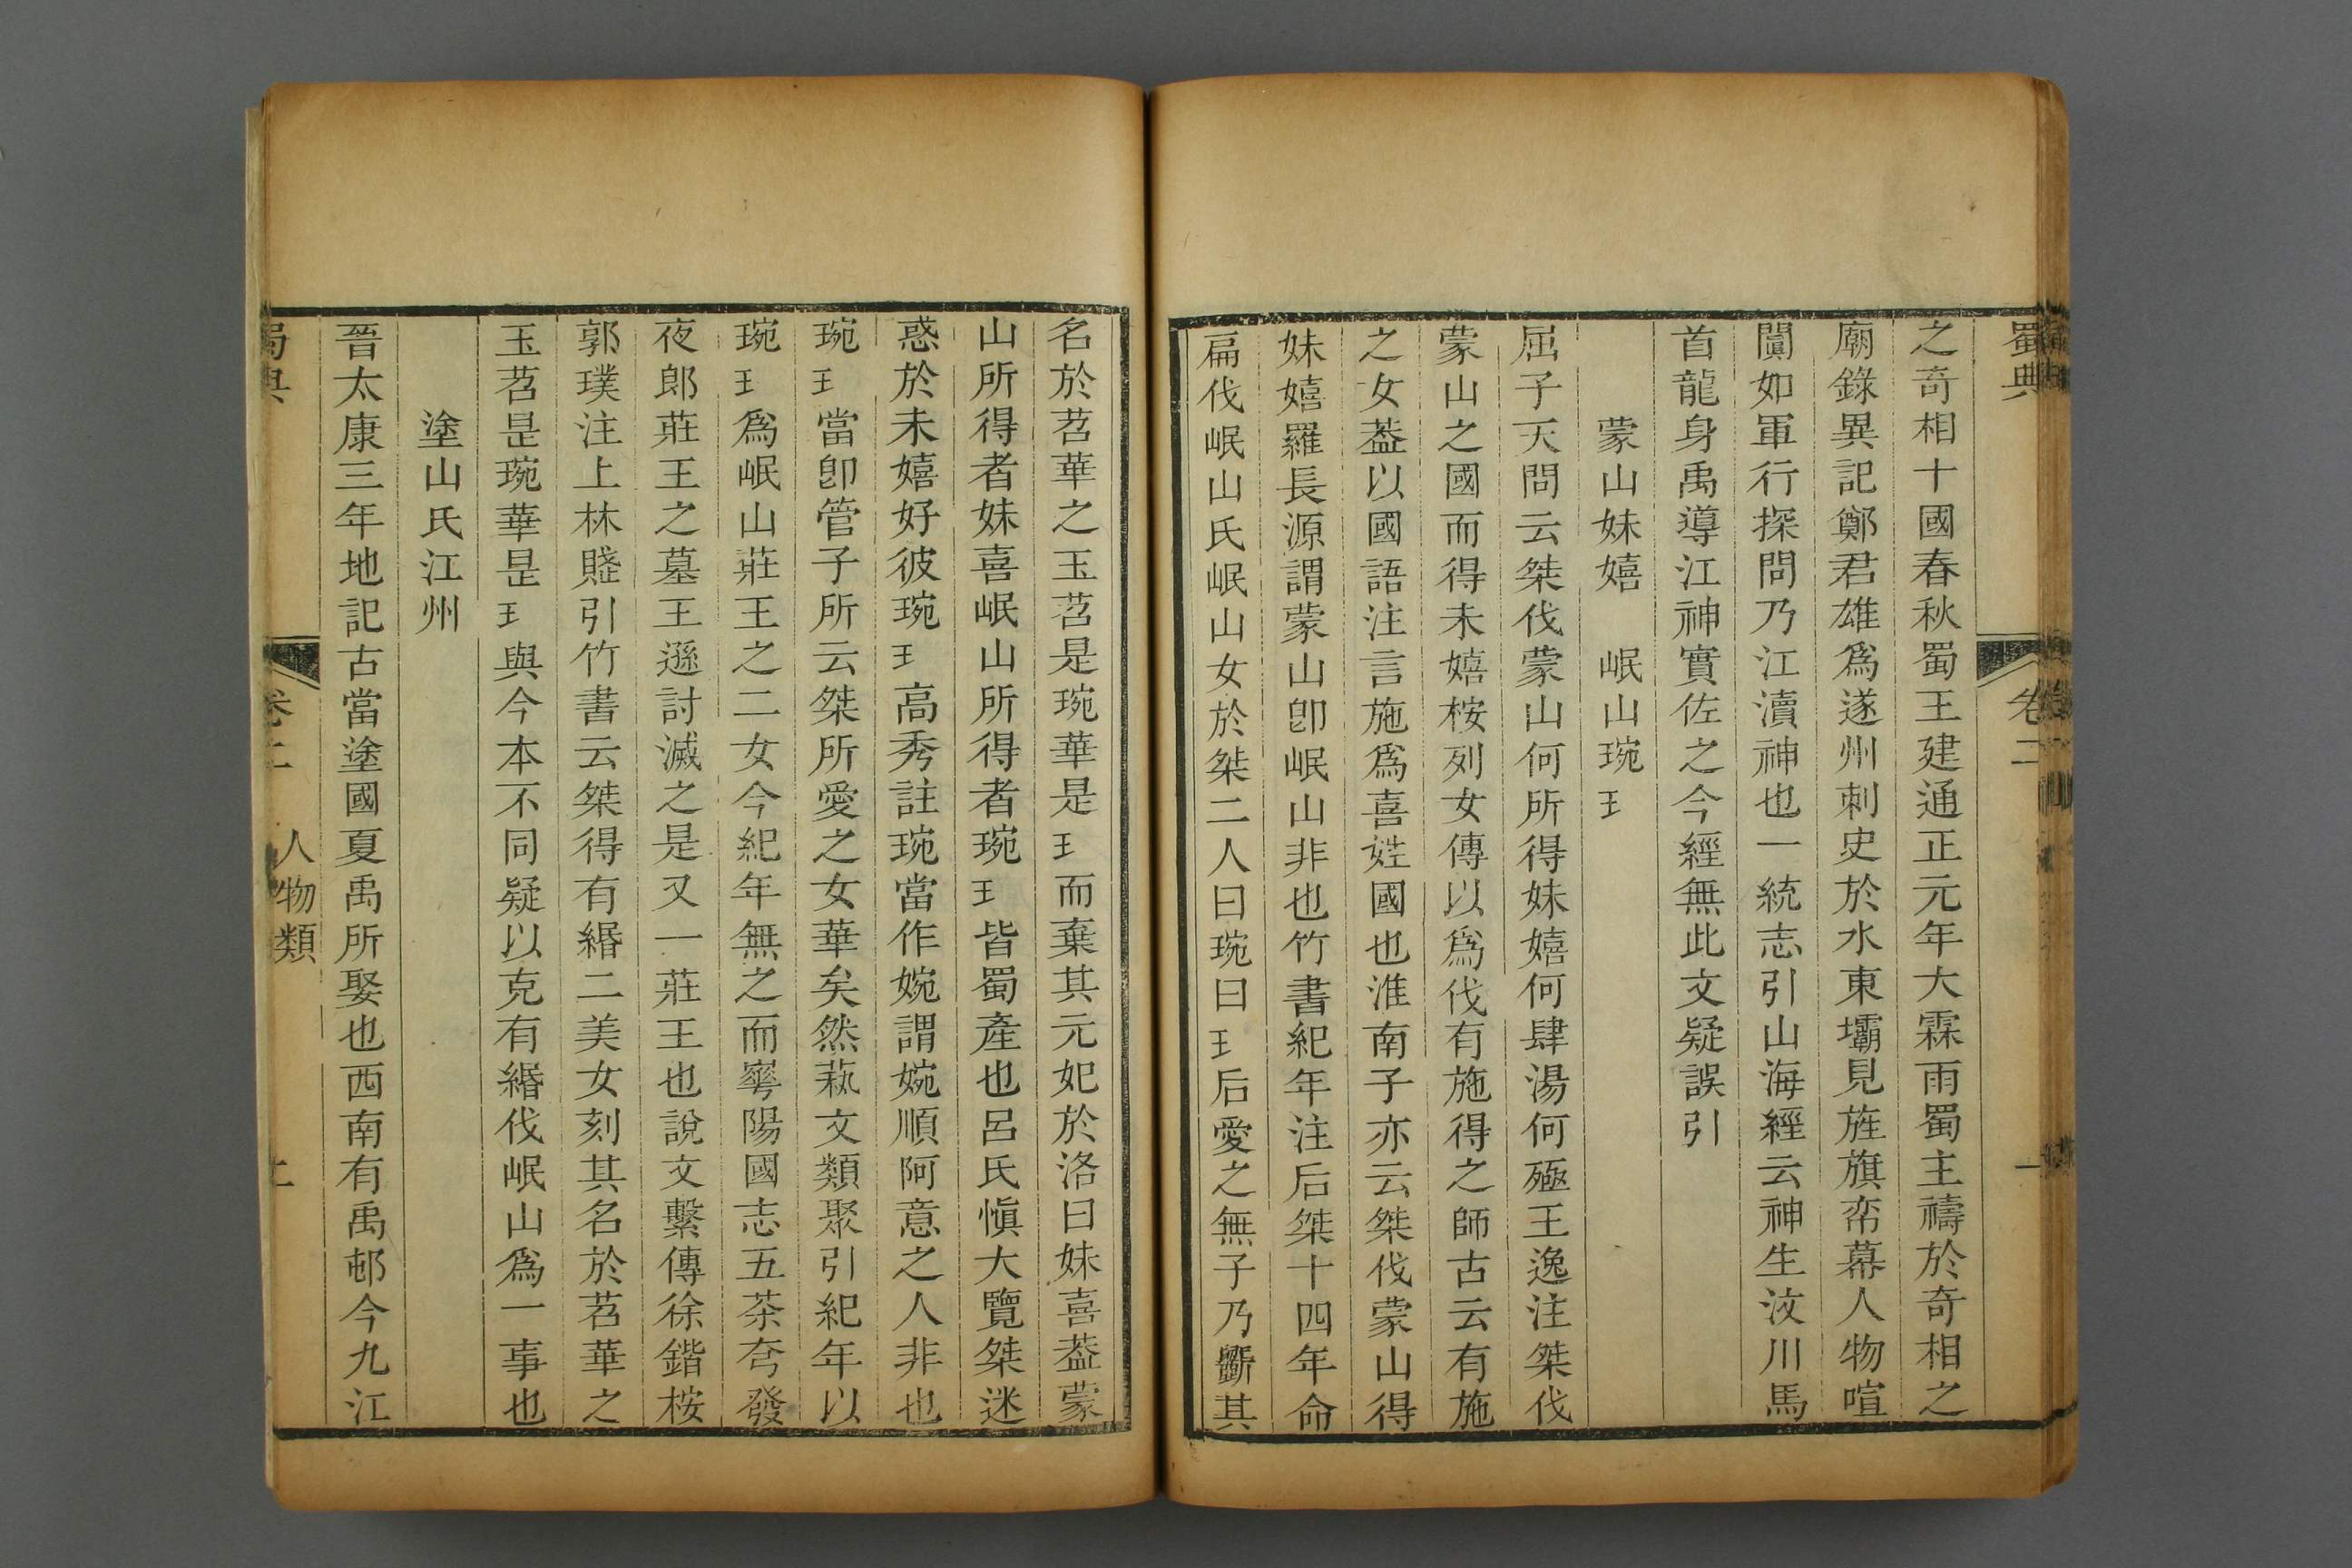 蜀典
卷二
之奇相十國春秋蜀王建通正元年大霖雨蜀主禱於奇相之
廟錄異記鄭君雄爲遂州刺史於水東壩見旌旗帟幕人物喧
闐如軍行探問乃江瀆神也一統志引山海經云神生汶川馬
首龍身禹導江神實佐之今經無此文疑誤引
蒙山妹嬉　岷山琬𤣩
屈子天問云桀伐蒙山何所得妹嬉何肆湯何殛王逸注桀伐
蒙山之國而得未嬉桉列女傳以爲伐有施得之師古云有施
之女葢以國語注言施爲喜姓國也淮南子亦云桀伐蒙山得
妹嬉羅長源謂蒙山卽岷山非也竹書紀年注后桀十四年命
扁伐岷山氏岷山女於桀二人曰琬曰𤣩后愛之無子乃斲其
名於苕華之玉苕是琬華是𤣩而棄其元妃於洛曰妹喜葢蒙
山所得者妹喜岷山所得者琬𤣩皆蜀產也呂氏愼大覽桀迷
惑於未嬉好彼琬𤣩高秀註琬當作婉謂婉順阿意之人非也
琬𤣩當卽管子所云桀所愛之女華矣然蓺文類聚引紀年以
琬𤣩爲岷山莊王之二女今紀年無之而寧陽國志五茶夸發
夜郎莊王之墓王遜討滅之是又一莊王也說文繫傳徐鍇桉
郭璞注上林賦引竹書云桀得有緡二美女刻其名於苕華之
玉苕是琬華是𤣩與今本不同疑以克有緡伐岷山爲一事也
塗山氏江州
晉太康三年地記古當塗國夏禹所娶也西南有禹邨今九江
蜀典
卷二
人物類